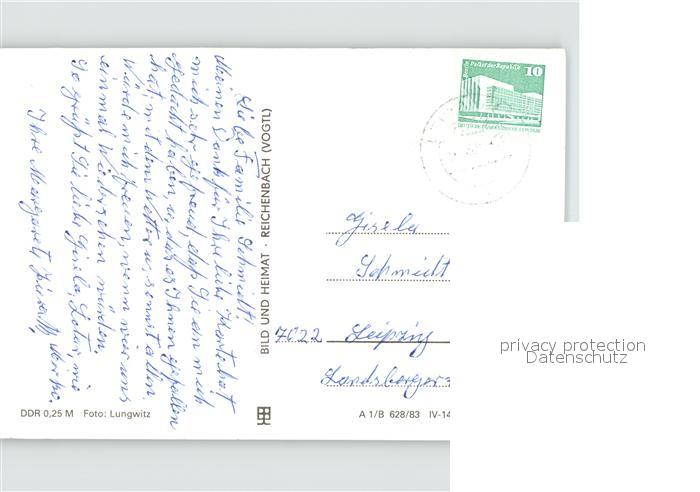 Liebe Familie Schmidt!
Meinen Dank für Ihre liebe Karte hat
mich sehr gefreut, daß Sie an mich
gedacht haben, u. daß es Ihnen gefallen
hat, mit dem Wetter u. sonst allem.
Würde mich freuen, wenn wir uns
einmal Wiedersehen würden.
Es grüßt Sie liebe Gisela, Lotar, wie
Ihre Margarete
BILD UND HEIMAT · REICHENBACH (VOGTL)
Berlin Palast der Republik
10
DEUTSCHE DEMOKRATISCHE REPUBLIK
Gisela
Schmidt
7022 Leipzig
Landsberger
privacy protection
Datenschutz
DDR 0,25 M Foto: Lungwitz
A 1/B 628/83 IV-14